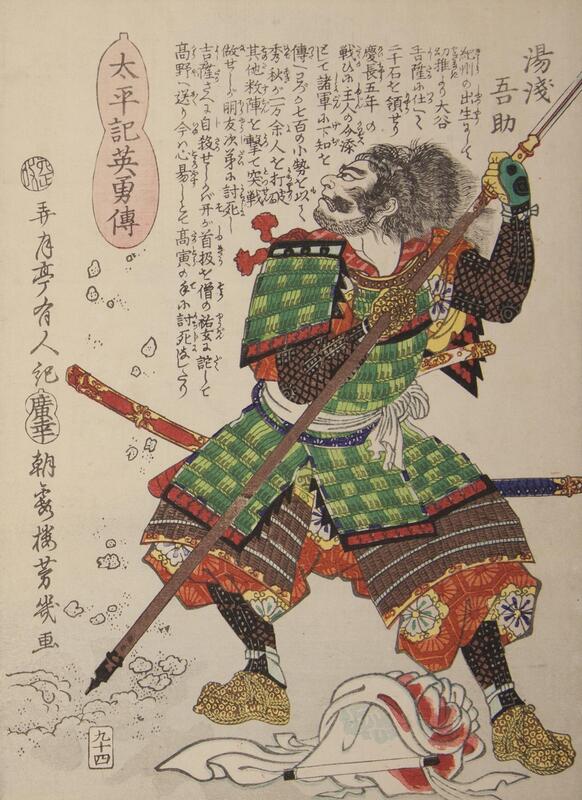 湯淺
吾助
紀州の出生にして
より大谷
吉隆に仕へて
二千石を領せり
慶長五年の
戦ひに主人の
して諸軍に下知を
七百の小勢を以て
秀秋が一万余人を打破
其他救陣を撃て突戦
做せしが朋友次第に討死し
吉隆さへに自殺せしかバ首級を僧の祐玄に託して
高野へ送り今ハ心易しとて高寅の手に討死なしたり
太平記英勇傳
弄月亭有人記
廣幸
朝霞楼芳幾画
九十四